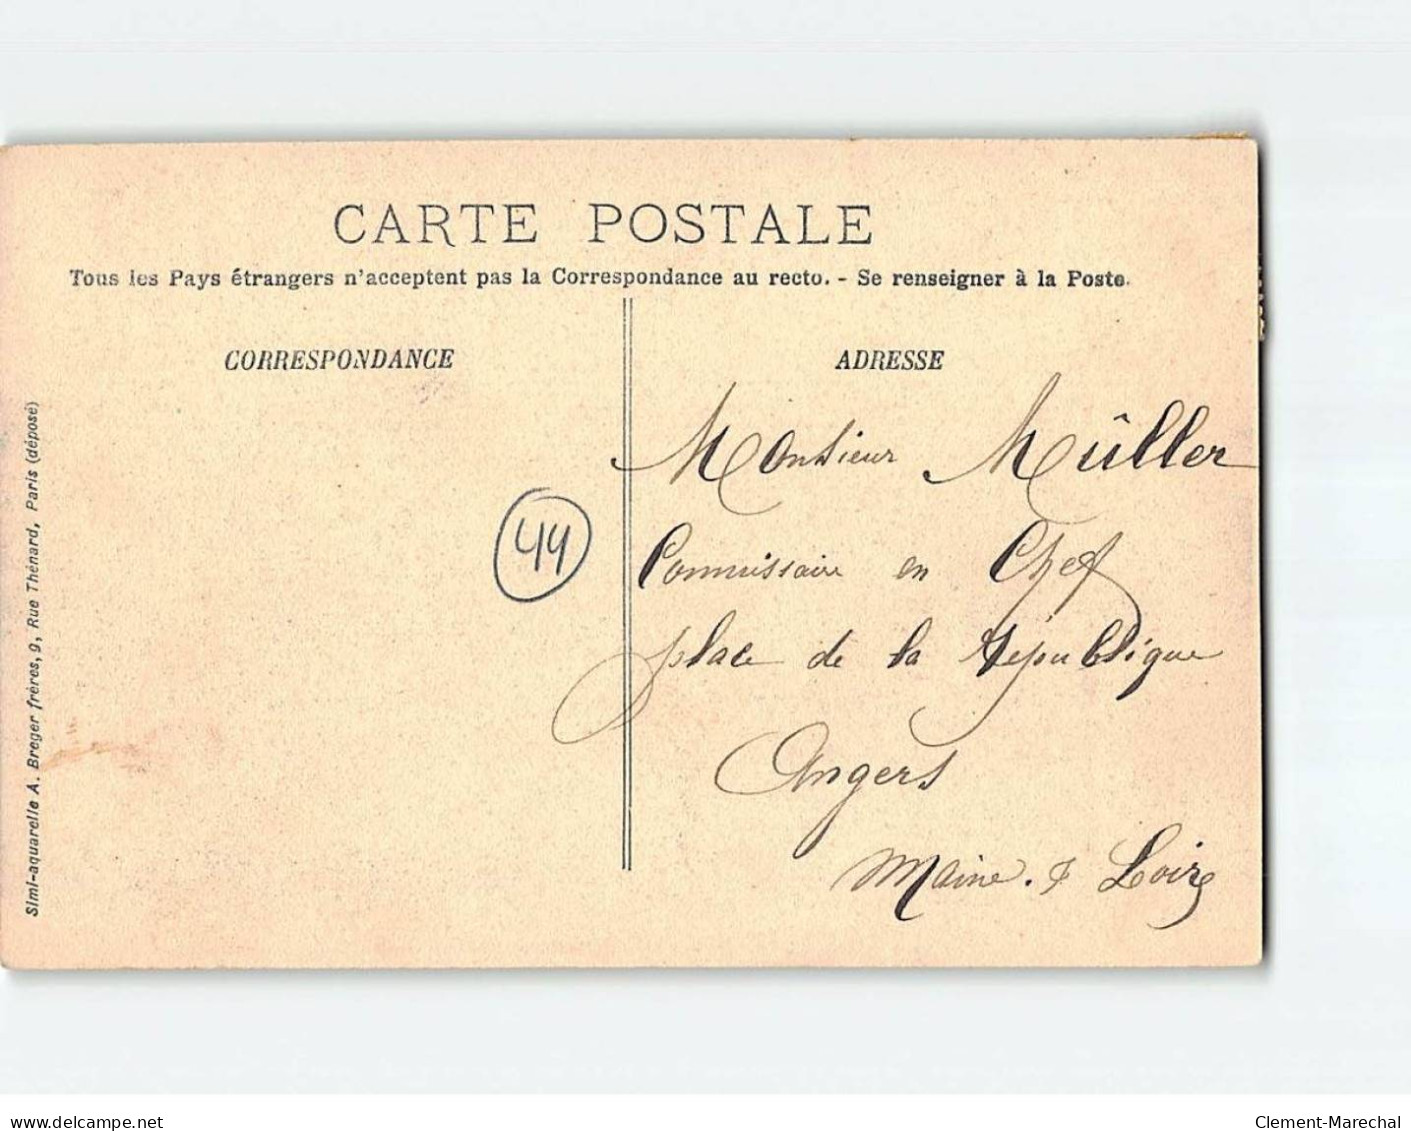 CARTE POSTALE
Tous les Pays étrangers n'acceptent pas la Correspondance au recto. - Se renseigner à la Poste.
CORRESPONDANCE
ADRESSE
Monsieur Mûller
Commissaire en Chef
place de la République
Angers
Maine. & Loire
44
Simi-aquarelle A. Breger frères, 9, Rue Thénard, Paris (déposé)
www.delcampe.net
Clement-Marechal